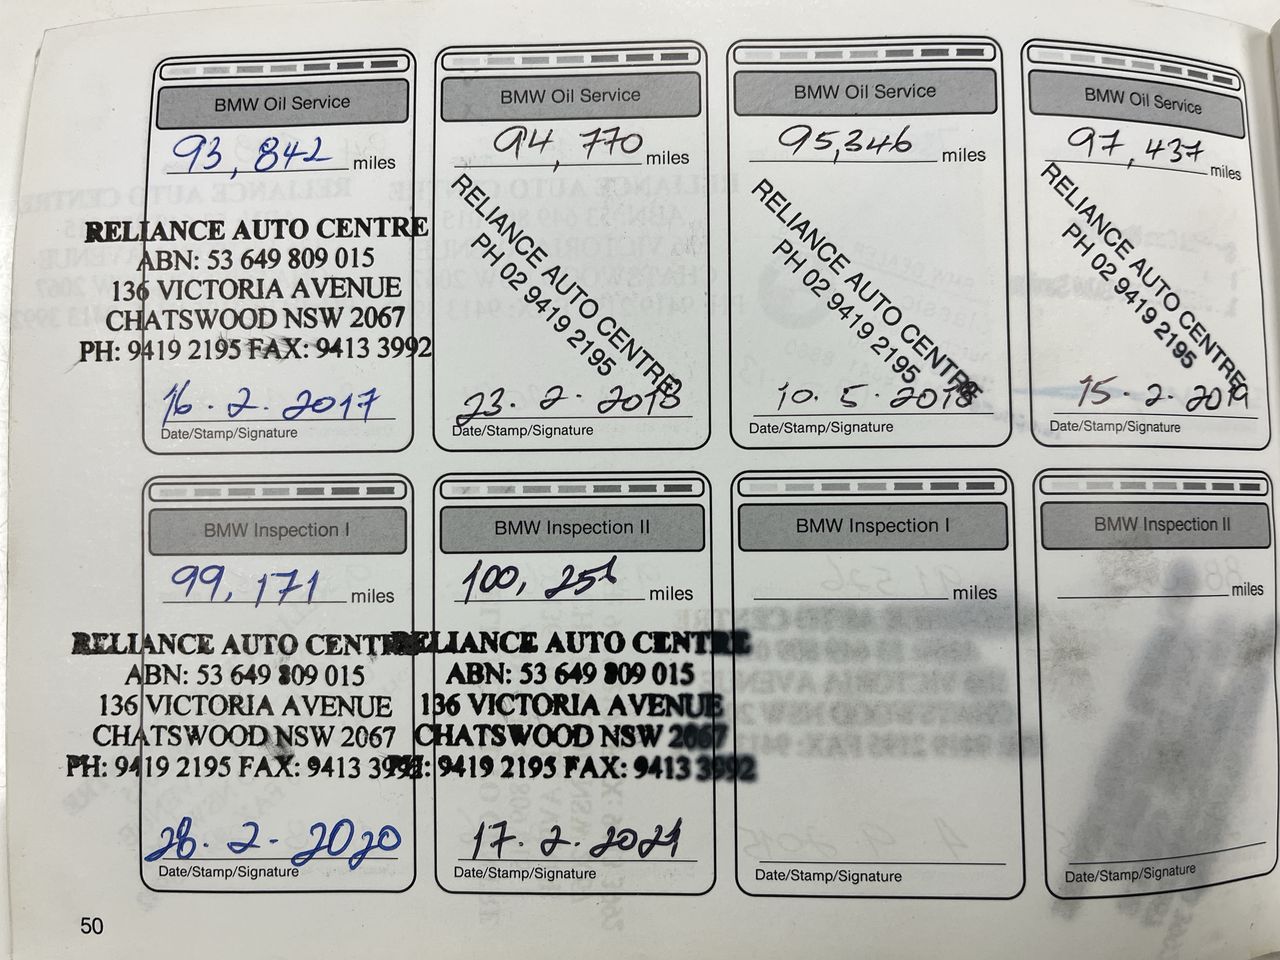 BMW Oil Service
93,842 miles
RELIANCE AUTO CENTRE
ABN: 53 649 809 015
136 VICTORIA AVENUE
CHATSWOOD NSW 2067
PH: 9419 2195 FAX: 9413 3992
16.2.2017
Date/Stamp/Signature
BMW Oil Service
94,770 miles
RELIANCE AUTO CENTRE
PH 02 9419 2195
23.2.2018
Date/Stamp/Signature
BMW Oil Service
95,346 miles
RELIANCE AUTO CENTRE
PH 02 9419 2195
10.5.2018
Date/Stamp/Signature
BMW Oil Service
97,437 miles
RELIANCE AUTO CENTRE
PH 02 9419 2195
15.2.2019
Date/Stamp/Signature
BMW Inspection I
99,171 miles
RELIANCE AUTO CENTRE
ABN: 53 649 809 015
136 VICTORIA AVENUE
CHATSWOOD NSW 2067
PH: 9419 2195 FAX: 9413 3992
28.2-2020
Date/Stamp/Signature
BMW Inspection II
100, miles
RELIANCE AUTO CENTRE
ABN: 53 649 809 015
136 VICTORIA AVENUE
CHATSWOOD NSW 2067
PH: 9419 2195 FAX: 9413 3992
17.2.2021
Date/Stamp/Signature
BMW Inspection I
miles
Date/Stamp/Signature
BMW Inspection II
miles
Date/Stamp/Signature
50